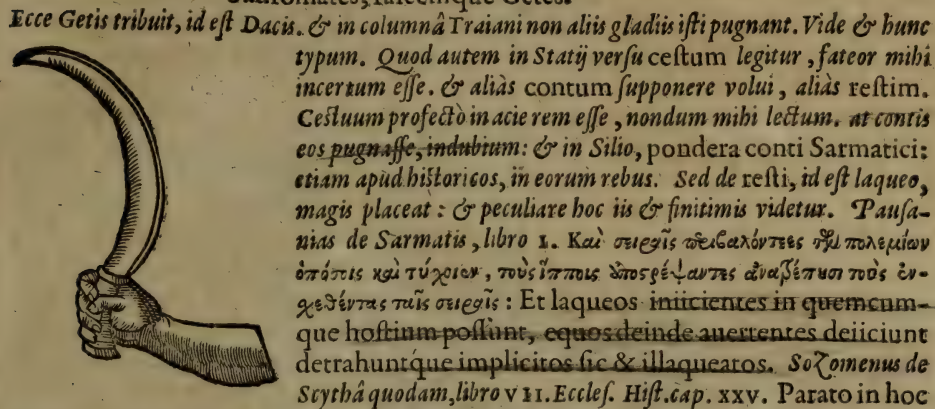 Ecce Getis tribuit, id eſt Dacis. & in columnâ Traiani non aliis gladiis iſti pugnant. Vide & hunc
typum. Quod autem in Statij verſu ceſtum legitur, fateor mihi
incertum eſſe. & aliàs contum ſupponere volui, aliàs reſtim.
Ceſtuum profectò in acie rem eſſe, nondum mihi lectum. at contis
eos pugnaſſe, indubium: & in Silio, pondera conti Sarmatici:
etiam apud hiſtoricos, in eorum rebus. Sed de reſti, id eſt laqueo,
magis placeat: & peculiare hoc iis & finitimis videtur. Pauſa-
nias de Sarmatis, libro 1. Καὶ σειραῖς περιβαλόντες τῶν πολεμίων
ὁπόσοις καὶ τύχοιεν, τοὺς ἵππους ἀποστρέψαντες ἀνατρέπουσι τοὺς ἐν-
σχεθέντας ταῖς σειραῖς: Et laqueos iniicientes in quemcum-
que hoſtium poſſunt, equos deinde auertentes deiiciunt
detrahuntq́ue implicitos ſic & illaqueatos. Sozomenus de
Scythâ quodam, libro VII. Eccleſ. Hiſt. cap. XXV. Parato in hoc